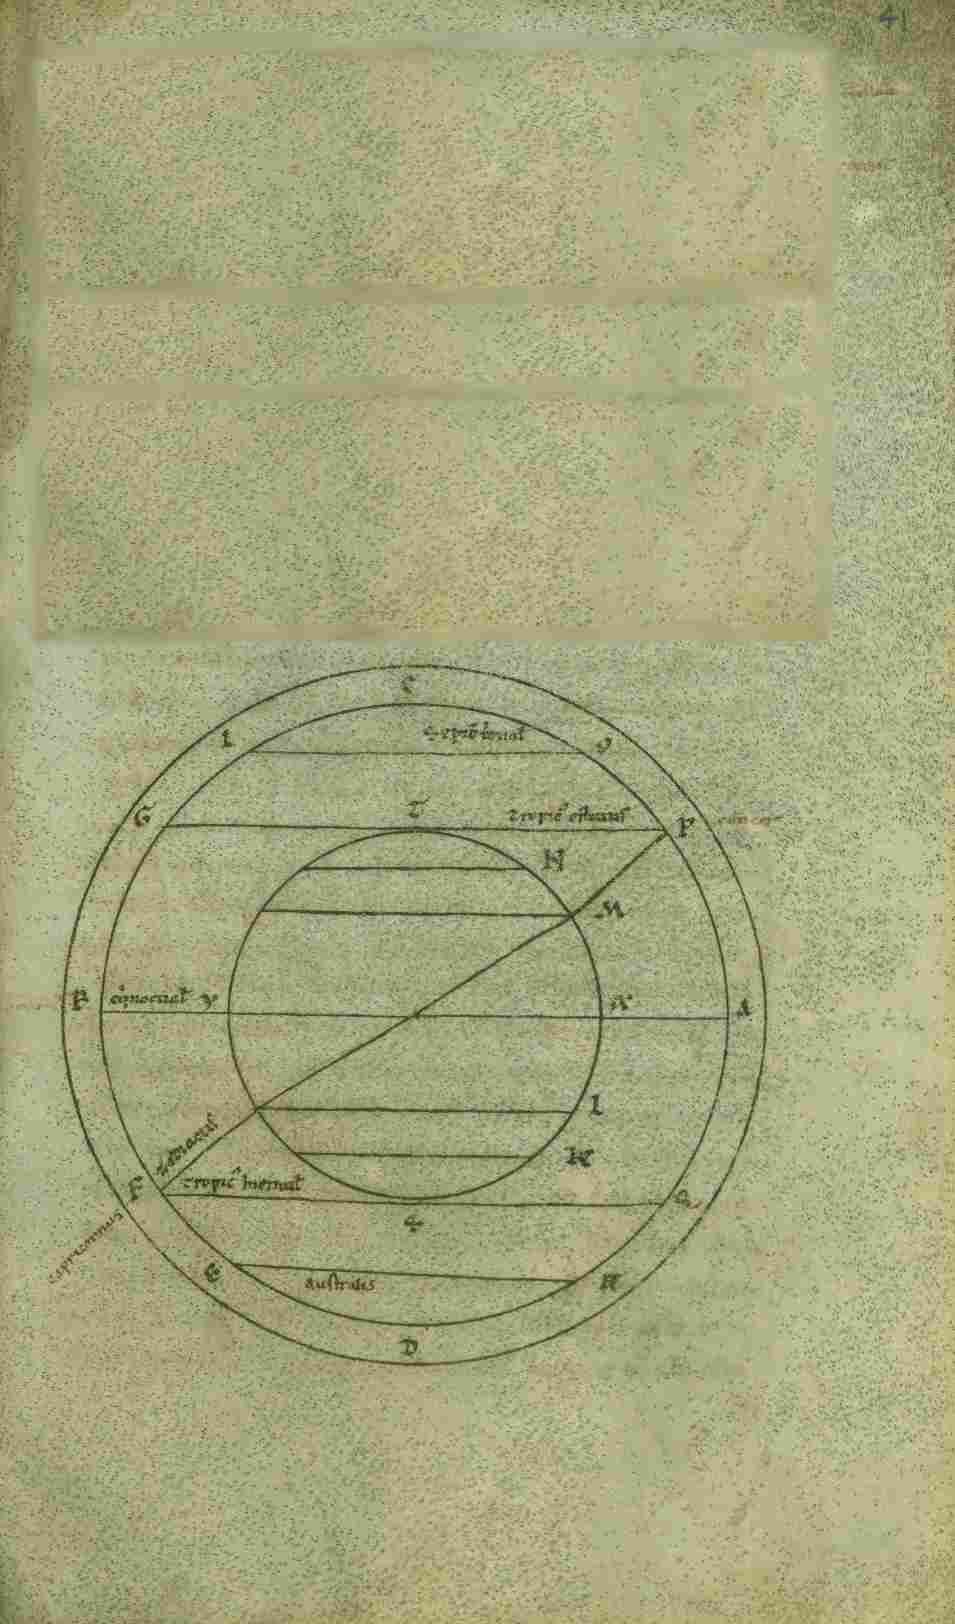 41
C
I
septẽtrional̃
O
G
T
tropic᷒ estiuus
P
cancer
N
M
B
eq̃noctial̃
Y
X
A
L
zodiacus
K
F
tropic᷒ hiemal̃
Q
S
capricornus
E
australis
R
D